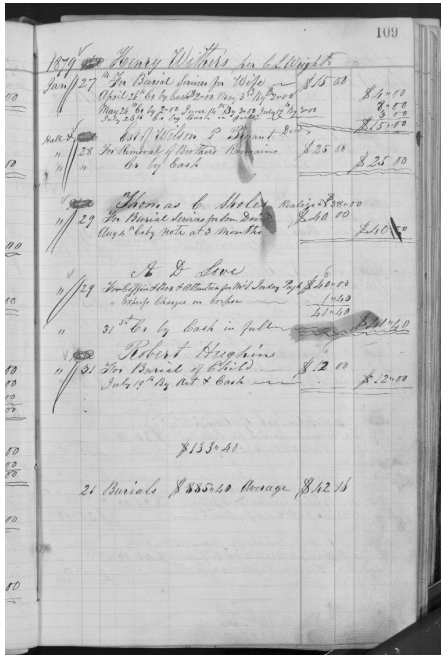 109
1879 Henry Withers for C L Wright
Jan 27 For Burial Services for Wife $15 00
April 26th Cr by Cash 2"00 May 3rd By 2"00 $4"00
May 24th Cr by 2"00 June 14th By 3"00 July 17th By 3"00 8"00
July 26th Cr by Cash in full 3 00
$15"00
Est of Wilson P Bryant Decd
" 28 For Removal of Brothers Remains $25 00
" Cr by Cash $25 00
Thomas C Sholes Realized $38"00
" 29 For Burial Services for Son David $40 00
Aug 4th Cr by note at 3 months $40"00
A D Love
" 29 For Coffin & Box & Attention $40"00
" Express Charges on Corpse 1"40
41"40
" 31st Cr by Cash in full $41"40
Robert Hughin
" 31 For Burial of Child $12 00
July 19th By Acct & Cash $12"00
$133"40
21 Burials $885"40 Average $42 16